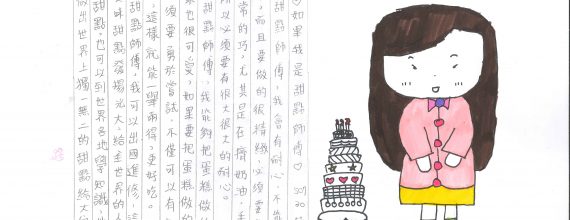 ♡如果我是甜點師傅♡
甜點師傅,我會有耐心,不
,而且要做的很精緻,必須要
常的巧,尤其是在擠奶油,手
所以必須要有很大很大的耐心。
甜點師傅,我能夠把蛋糕做
來也很可愛,如果要把蛋糕做的
須要勇於嘗試,不僅可以有
,這樣就能一舉兩得,更好吃。
甜點師傅,我可以出國進修,這
味甜點發揚光大,給全世界的人
甜點,也可以到世界各地學知識,
做出世界上獨一無二的甜點給大